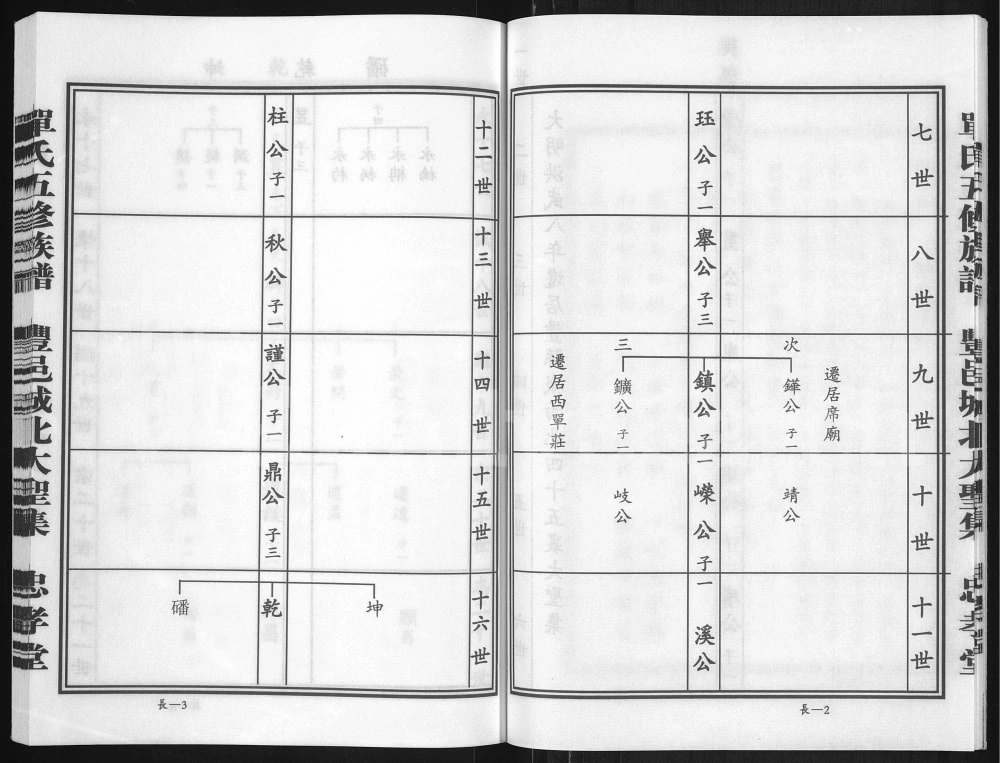 七世
珏公 子一
八世
舉公 子三
九世
遷居席廟
次
鏵公 子一
鎮公 子一
三
鑛公 子一
遷居西單莊
十世
靖公
嶸公 子一
岐公
十一世
溪公
長—2
十二世
柱公 子一
十三世
秋公 子一
十四世
謹公 子一
十五世
鼎公 子三
十六世
坤
乾
磻
長—3
單氏五修族譜 豐邑城北大聖集 忠孝堂
單氏五修族譜 豐邑城北大聖集 忠孝堂